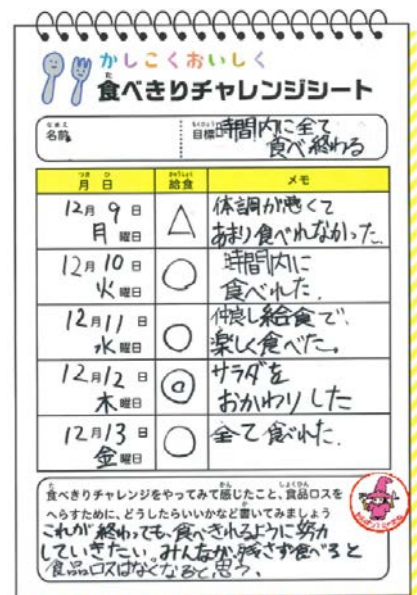 かしこくおいしく
食べきりチャレンジシート
名前
目標 時間内に全て
食べ終わる
月 日 給食 メモ
12月 9日 △ 体調が悪くて
月曜日 あまり食べれなかった
12月 10日 ○ 時間内に
火曜日 食べれた.
12月 11日 ○ 仲良し給食で、
水曜日 楽しく食べた。
12月 12日 ◎ サラダを
木曜日 おかわりした
12月 13日 ○ 全て食べれた.
金曜日
食べきりチャレンジをやってみて感じたこと、食品ロスを
へらすために、どうしたらいいかなど書いてみましょう
これが終わっても、食べきれるように努力
していきたい。みんなが、残さず食べると
食品ロスはなくなると思う、